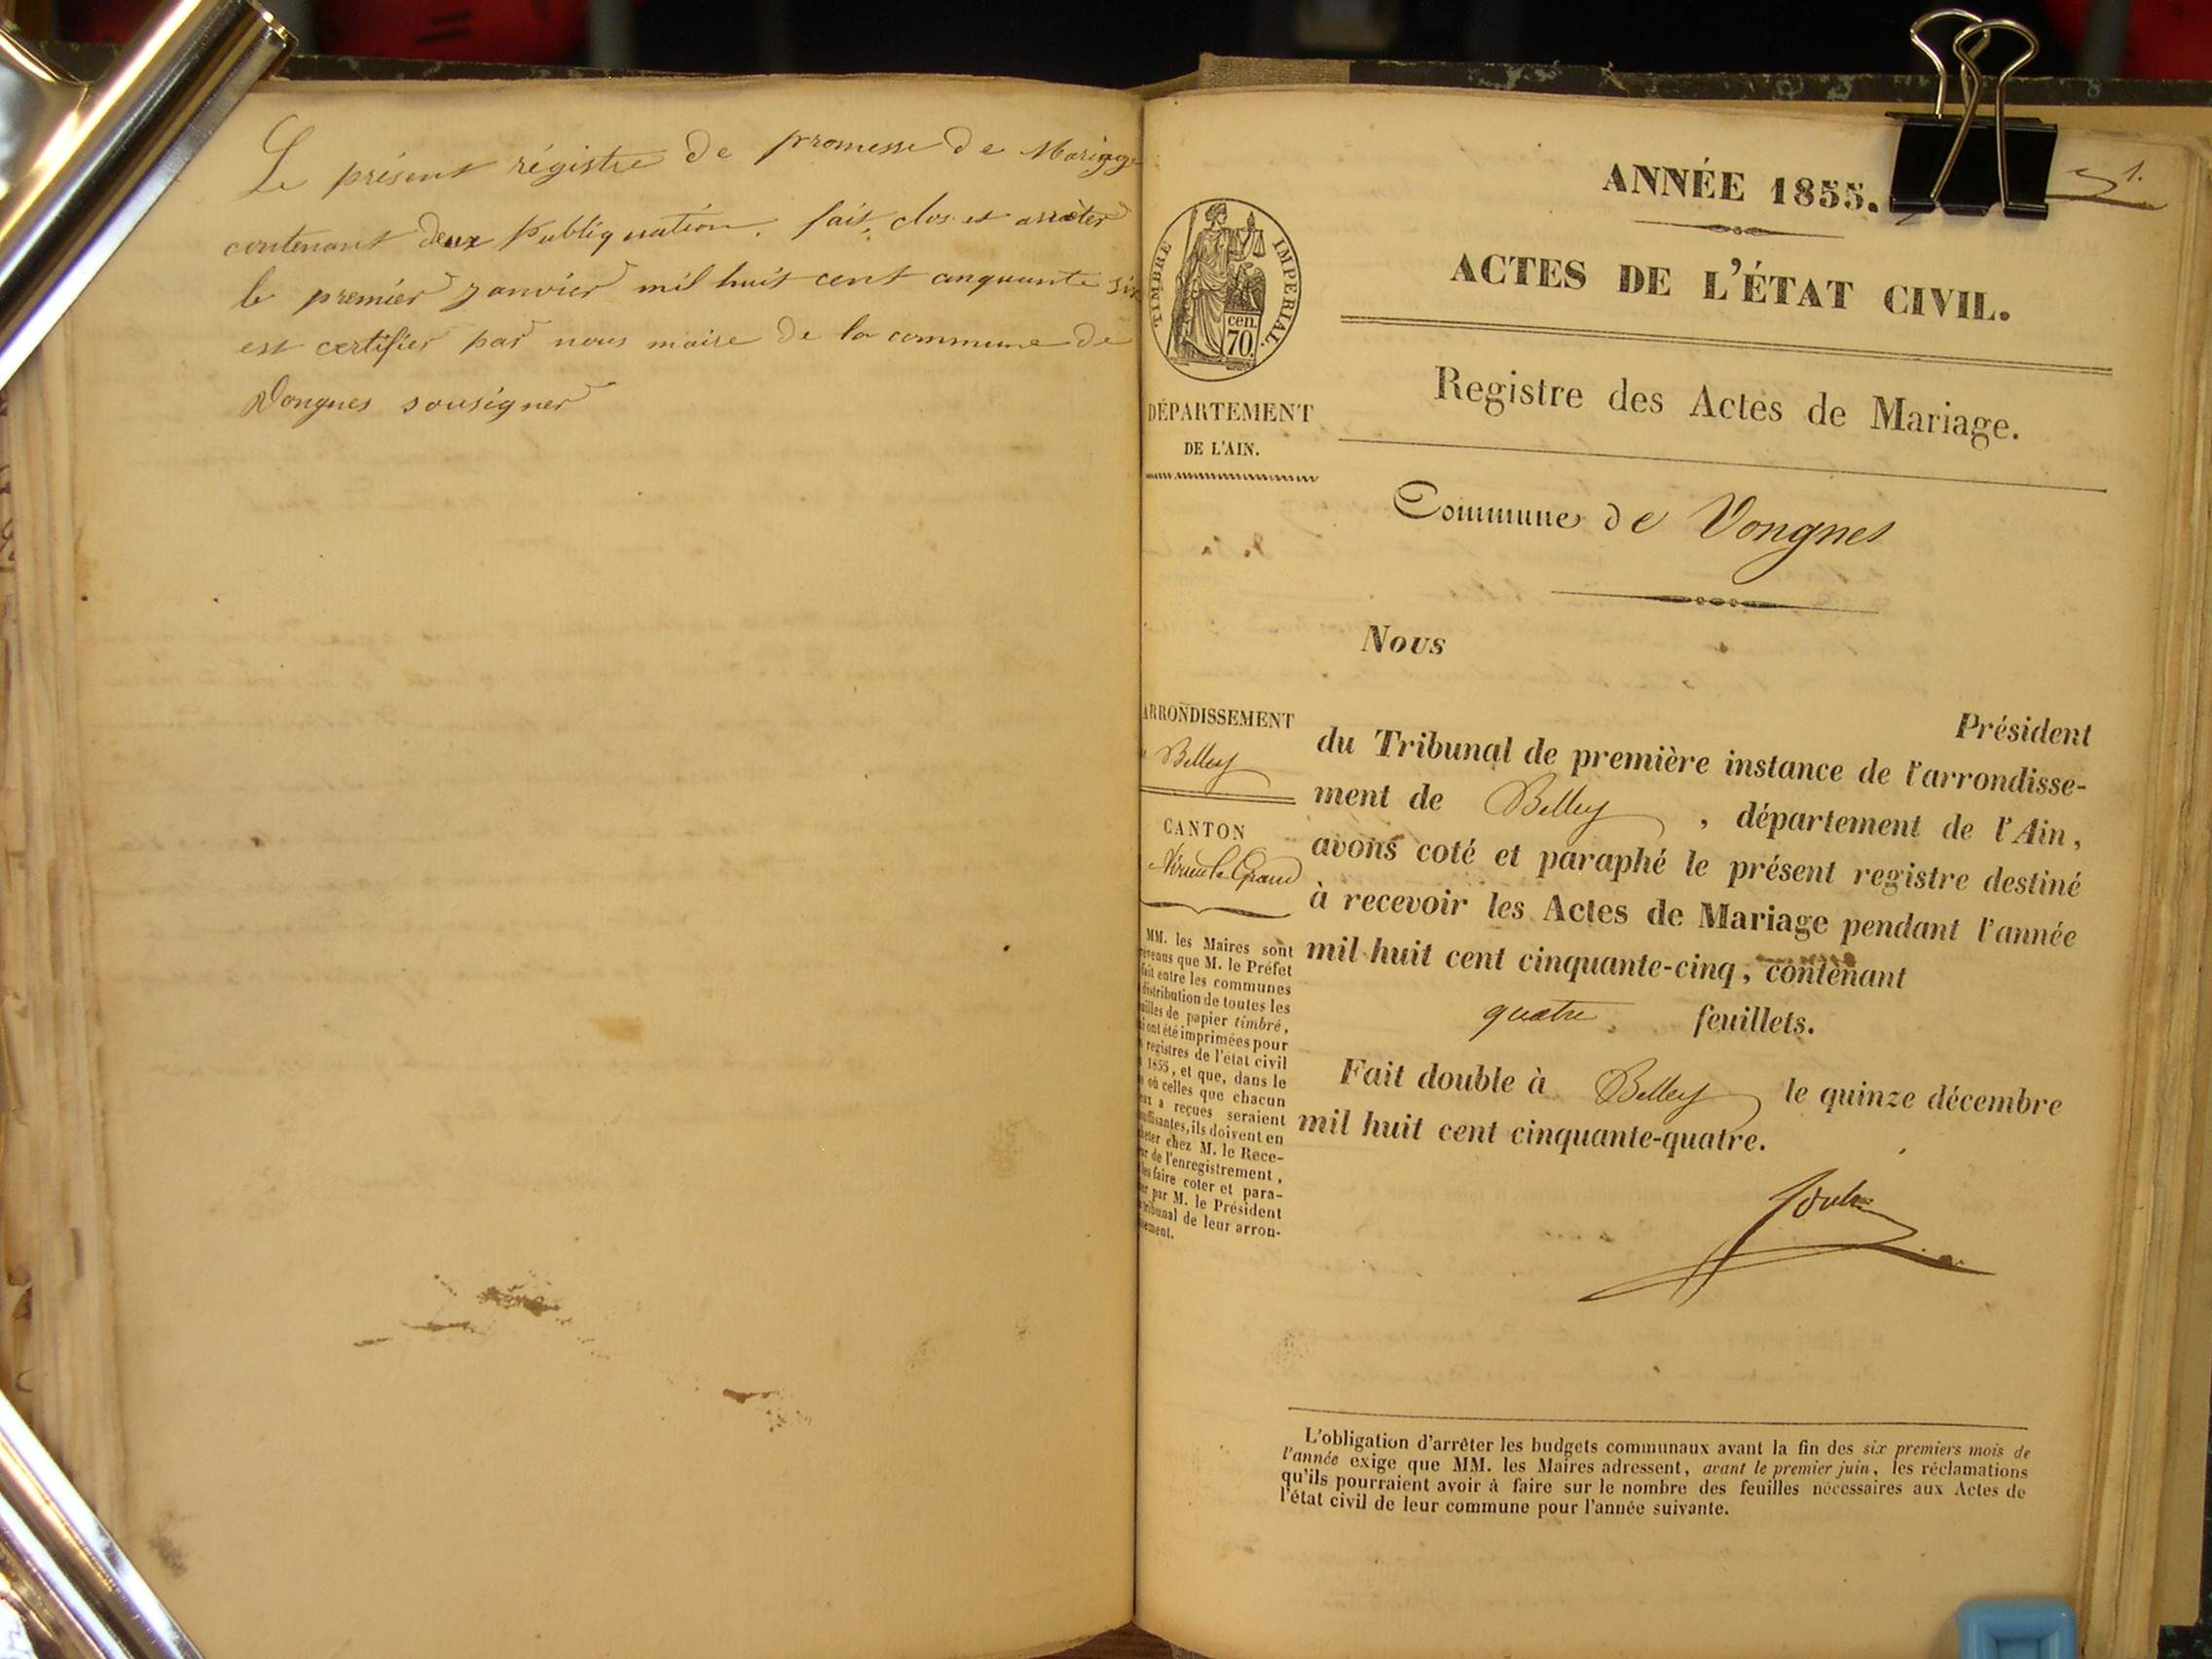 Le présent régistre de promesse de Mariage
contenant deux Publiquation, fait, clos et arrèter
le premier Janvier mil huit cent cinquante six
est certifier par nous maire de la commune de
Vongnes sousigner
1.
ANNÉE 1855.
ACTES DE L'ÉTAT CIVIL.
TIMBRE IMPERIAL.
cen.
70.
Registre des Actes de Mariage.
DÉPARTEMENT
DE L'AIN.
Commune de Vongnes
Nous
Président
du Tribunal de première instance de l'arrondisse-
ment de Belley, département de l'Ain,
avons coté et paraphé le présent registre destiné
à recevoir les Actes de Mariage pendant l'année
mil huit cent cinquante-cinq, contenant
quatre feuillets.
Fait double à Belley le quinze décembre
mil huit cent cinquante-quatre.
ARRONDISSEMENT
Belley
CANTON
Virieu le Grand
MM. les Maires sont
que M. le Préfet
fait entre les communes
distribution de toutes les
de papier timbré,
ont été imprimées pour
registres de l'état civil
1855, et que, dans le
où celles que chacun
a reçues seraient
ils doivent en
chez M. le Rece-
de l'enregistrement,
les faire coter et para-
par M. le Président
tribunal de leur arron-
L'obligation d'arrêter les budgets communaux avant la fin des six premiers mois de
l'année exige que MM. les Maires adressent, avant le premier juin, les réclamations
qu'ils pourraient avoir à faire sur le nombre des feuilles nécessaires aux Actes de
l'état civil de leur commune pour l'année suivante.